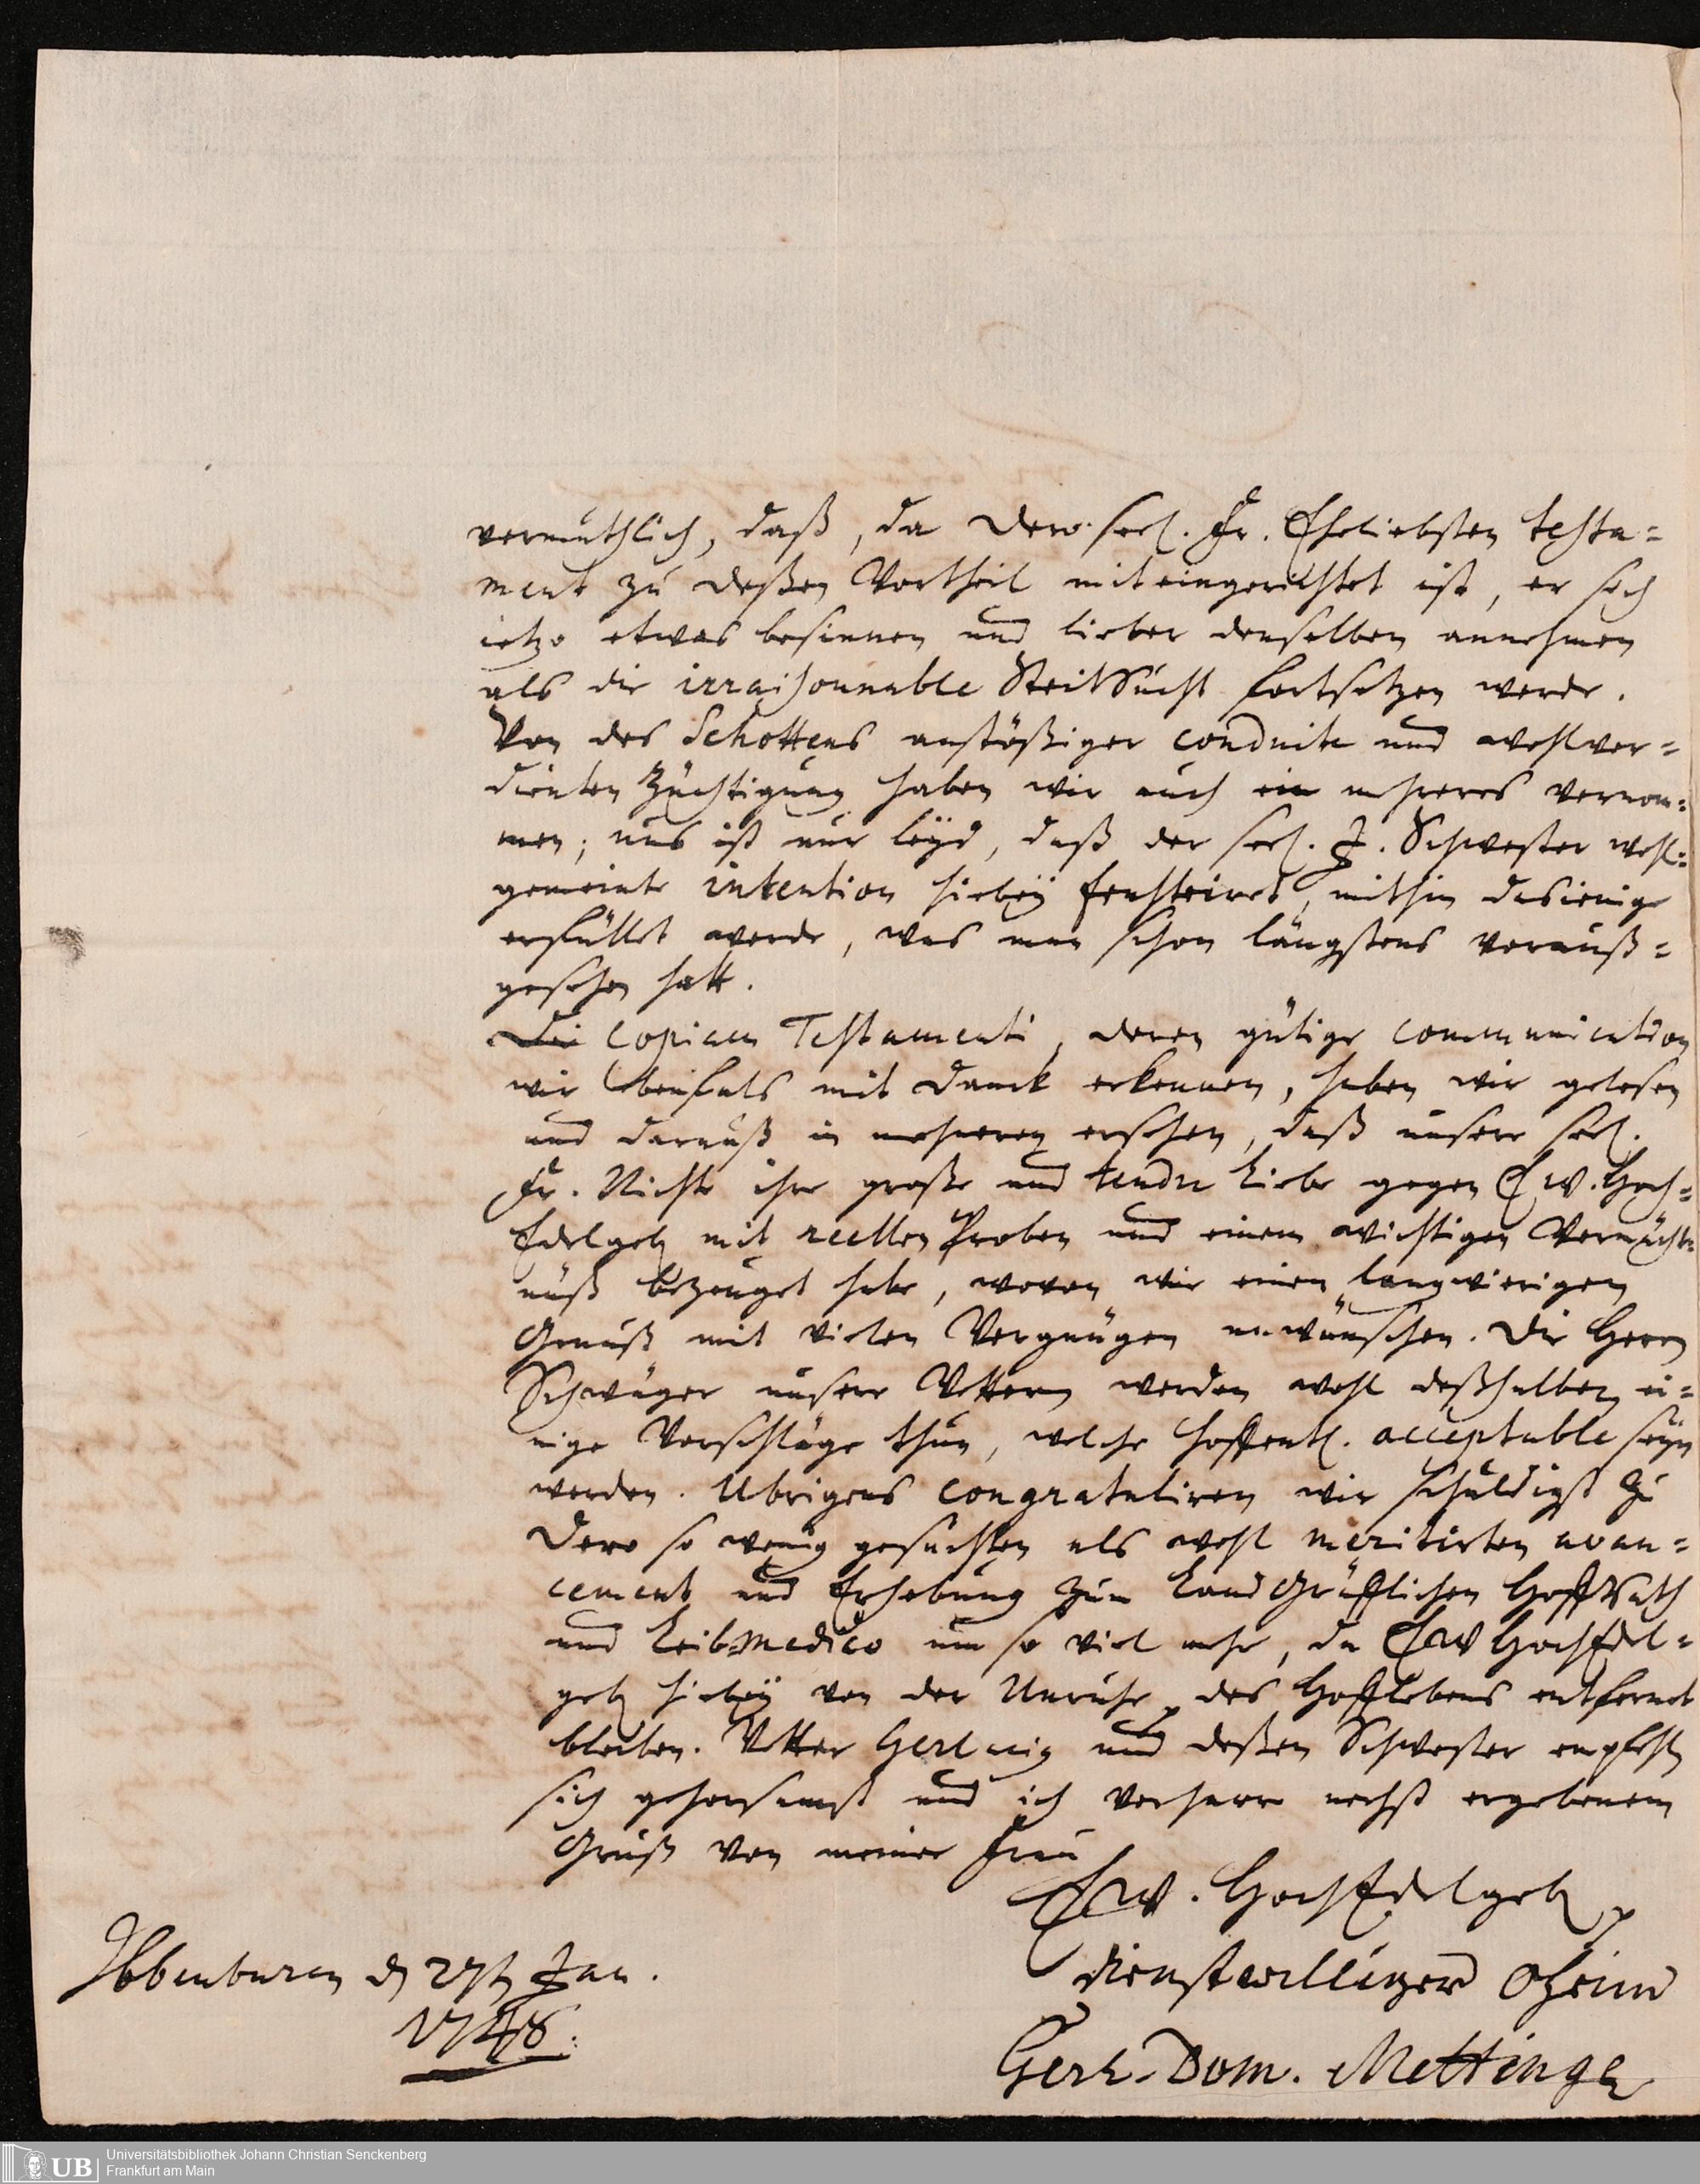 vermuthlich, daß, da Dero seel. Fr. Eheliebsten testa=
ment zu deßen Vortheil miteingerichtet ist, er sich
ietzo etwas besinnen und lieber denselben annehmen
als die irraisonnable Streitsucht fortsetzen werde.
Von des Schottens anstößiger conduite und wohlver=
dienten Züchtigung haben wir auch ein mehreres vernom=
men; uns ist nur leyd, daß der seel. Fr. Schwester wohl=
gemeinte intention hiebey frustriret, mithin dasienige
erfüllet werde, was man schon längstens vorauß=
gesehen hatt.
Die Copiam Testamenti, deren gütige communication
wir ebenfals mit Danck erkennen, haben wir gelesen
und darauß in mehreren ersehen, daß unsere seel.
Fr. Nichte ihre große und tendre Liebe gegen Ew. Hoch=
Edelgeb mit reellen Proben und einem wichtigen Vermächt=
nüß bezeuget habe, wovon wir einen langwierigen
Genuß mit vielen Vergnügen anwünschen. Die Herrn
Schwäger unsere Vettern werden wohl deßhalben ei=
nige Vorschläge thun, welche hoffentl. acceptable seyn
werden. Ubrigens congratuliren wir schuldigst zu
Dero so wenig gesuchten als wohl meritirten avan=
cement und Erhebung zum LandGräfflichen HoffRath
und LeibMedico um so viel mehr, da Ew HochEdel=
geb hiebey von der Unruhe des Hofflebens entfernet
bleiben. Vetter Gerl und deßen Schwester empfehl
sich gehorsamst und ich verharre nechst ergebenem
Gruß von meiner Frau
Ew. HochEdelgeb
dienstwilliger Oheim
Gerh. Dom. Metting
Ibbenburen d 27t Jan.
1748.
Universitätsbibliothek Johann Christian Senckenberg
UB Frankfurt am Main